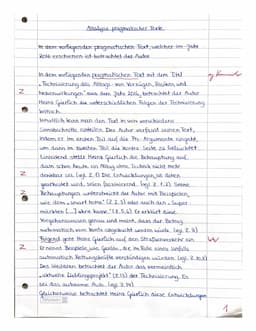 Analyse pragmatischer Texte
In dem vorliegenden pragmatischen Text, welcher im Jahr
2016 erschienen ist betrachtet der Autor
In dem vorliegenden pragmatischen Text mit dem Titel
„Technisierung des Alltags - von Vorzügen, Risiken und
Nebenwirkungen" aus dem Jahr 2016, betrachtet der Autor
Heinz Gierlich die unterschiedlichen Folgen der Technisierung
kritisch.
Inhaltlich kann man den Text in vier verschiedene
Sinnabschnitte einteilen. Der Autor verfasst seinen Text,
indem er im ersten Teil auf die Pro Argumente eingeht,
um dann im zweiten Teil die Kontra Seite zu beleuchten.
Einleitend stellt Heinz Gierlich die Behauptung auf,
dass schon heute, ein Alltag ohne Technik nicht mehr
denkbar sei (vgl. Z. 1). Die Entwicklungen, die daran
gearbeitet wird, seien faszinierend. (vgl. Z. 1 f.) Seine
Behauptungen unterstreicht der Autor mit Beispielen,
wie dem „smart home" (Z. 2, S) oder auch den „Super
märkten [...] ohne Kasse" (Z. 5, 6). Er erklärt diese
Vorgehensweisen genau und meint, dass der Betrag
automatisch vom Konto abgebucht werden würde. (vgl. Z. 9)
Folgend geht Heinz Gierlich auf den Straßenverkehr ein.
Er nennt Beispiele, wie Geräte, die im Falle eines Unfalls
automatisch Rettungskräfte verständigen würden. (vgl. Z. 10)
Des Weiteren betrachtet der Autor das vermeintlich
„aktuelle Lieblingsprojekt" (Z. 13) der Technisierung. Es
sei das autonome Auto. (vgl. Z. 14)
Gleichermaßen betrachtet Heinz Gierlich diese Entwicklungen
Z
Z
Z
Z
1